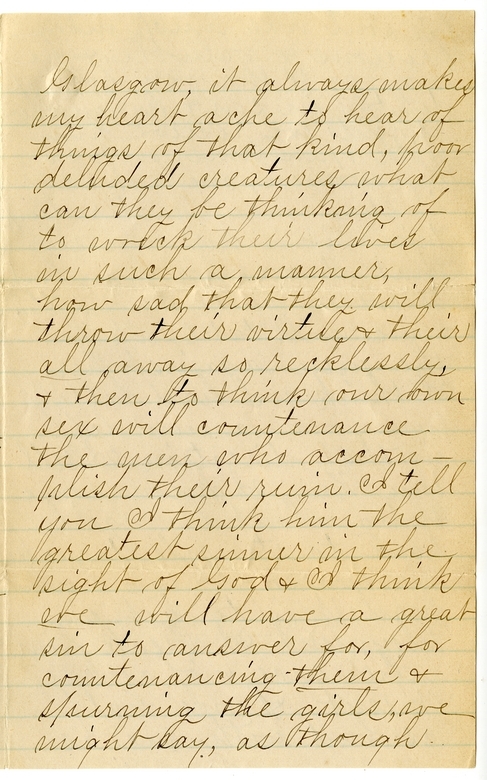 Glasgow, it always makes
my heart ache to hear of
things of that kind, poor
deluded creatures what
can they be thinking of
to wreck their lives
in such a manner,
how sad that they will
throw their virtue & their
all away so recklessly,
& then to think our own
sex will countenance
the men who accom-
plish their ruin. I tell
you I think him the
greatest sinner in the
sight of God & I think
we will have a great
sin to answer for, for
countenancing them &
spurning the girls, we
might say, as though